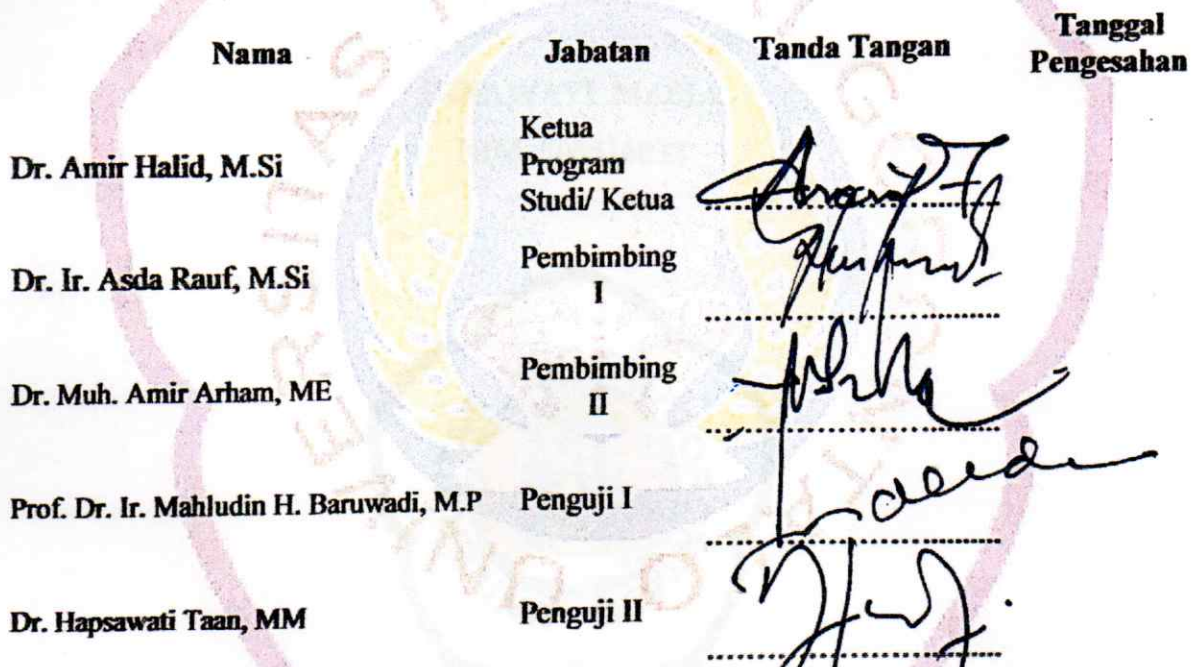 Nama Jabatan Tanda Tangan Tanggal Pengesahan
Dr. Amir Halid, M.Si Ketua Program Studi/ Ketua
Dr. Ir. Asda Rauf, M.Si Pembimbing I
Dr. Muh. Amir Arham, ME Pembimbing II
Prof. Dr. Ir. Mahludin H. Baruwadi, M.P Penguji I
Dr. Hapsawati Taan, MM Penguji II